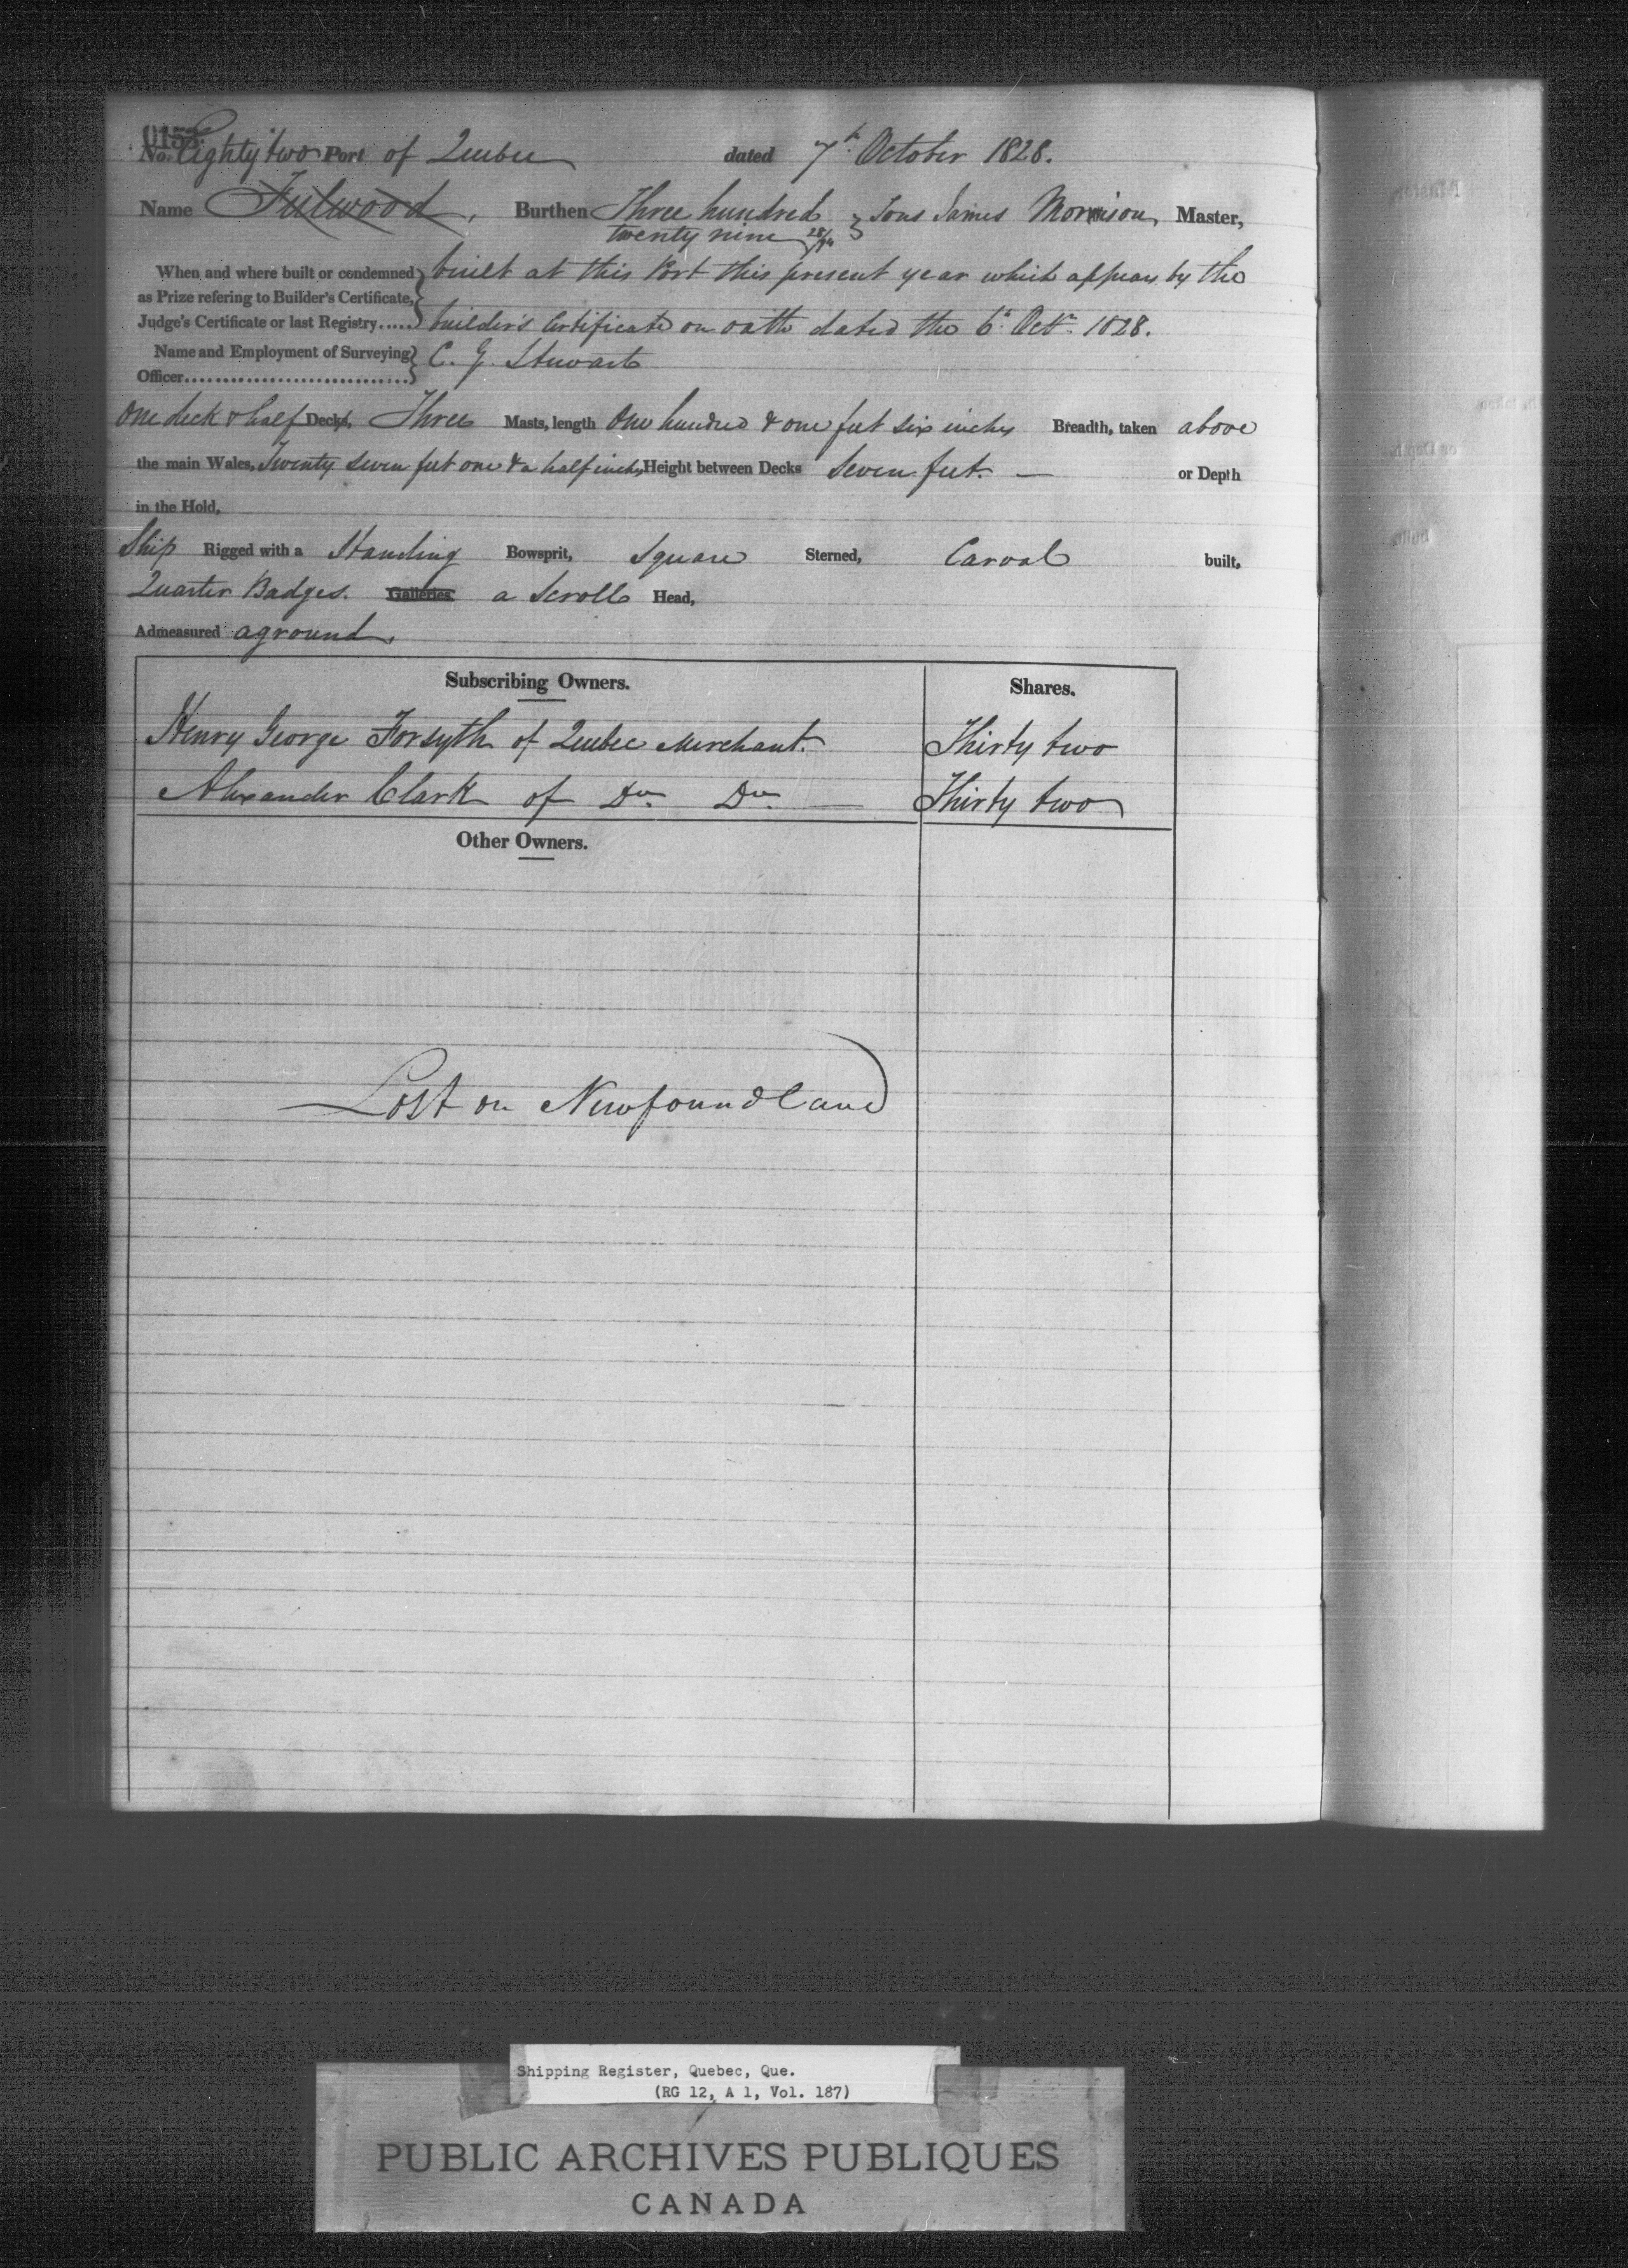 0153
No. Eighty two Port of Quebec dated 7th October 1828.
Name Fulwood, Burthen Three hundred twenty nine 28/94 } Tons James Morrison, Master,
When and where built or condemned as Prize refering to Builder's Certificate, Judge's Certificate or last Registry..... } built at this Port this present year which appears by the
builder's Certificate on oath dated the 6th Octr. 1828.
Name and Employment of Surveying Officer.............................. } C. G. Stewart
One deck & half Decks, Three Masts, length One hundred & one feet six inches Breadth, taken above
the main Wales, Twenty seven feet one & a half inches, Height between Decks Seven feet. — or Depth
in the Hold,
Ship Rigged with a Standing Bowsprit, Square Sterned, Carvel built,
Quarter Badges. Galleries, a Scroll Head,
Admeasured aground.
Subscribing Owners. Shares.
Henry George Forsyth of Quebec Merchant. Thirty two
Alexander Clark of Do. Do. — Thirty two
Other Owners.
Lost on Newfoundland
Shipping Register, Quebec, Que.
(RG 12, A 1, Vol. 187)
PUBLIC ARCHIVES PUBLIQUES
CANADA